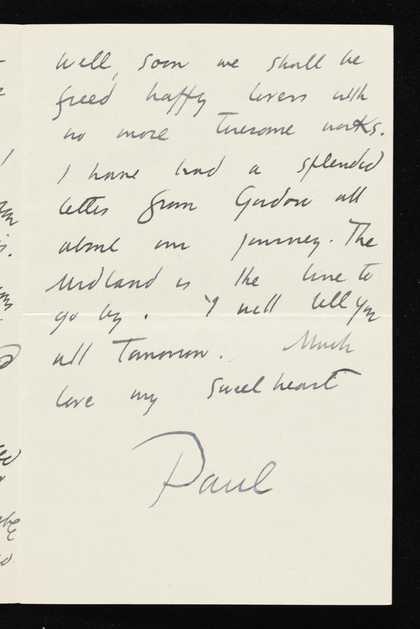 Well, soon we shall be
freed happy lovers with
no more tiresome works.
I have had a splended
letter from Gordon all
about our journey. The
Midland is the line to
go by. I will tell you
all Tomorrow. Much
love my sweet heart
Paul